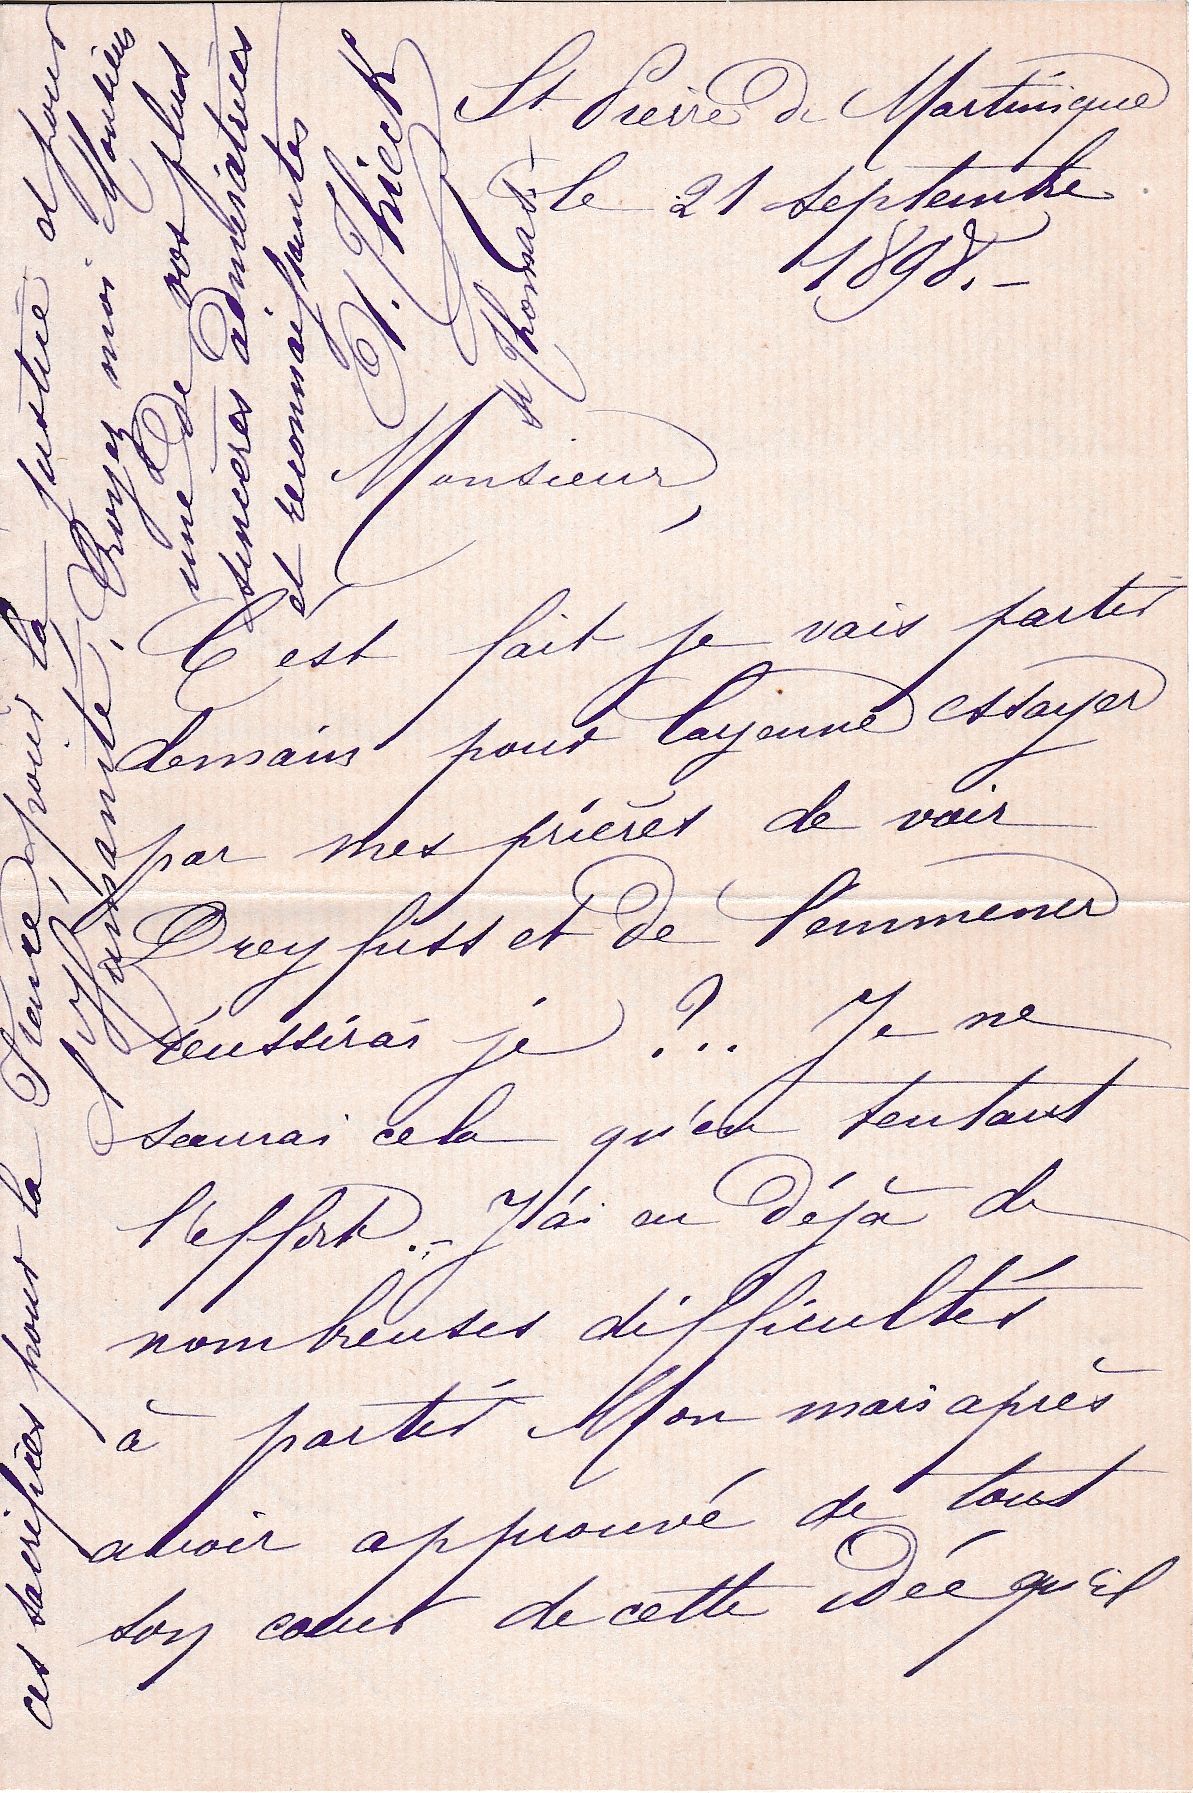 St Pierre de Martinique
le 21 septembre
1898.-
Monsieur,
C'est fait je vais partir
demain pour Cayenne essayer
par mes prières de voir
Dreyfuss et de l'emmener
réussirai je ?.. Je ne
saurai cela qu'en tentant
l'effort.- J'ai eu déjà de
nombreuses difficultés
à partir Mon mari après
avoir approuvé de tout
son cœur de cette idée qu'il
ces sacrifices pour la France, pour la justice et pour
l'Humanité. Croyez moi Monsieur
une de vos plus
sincères admiratrices
et reconnaissantes
J. Thieck
St Thomas